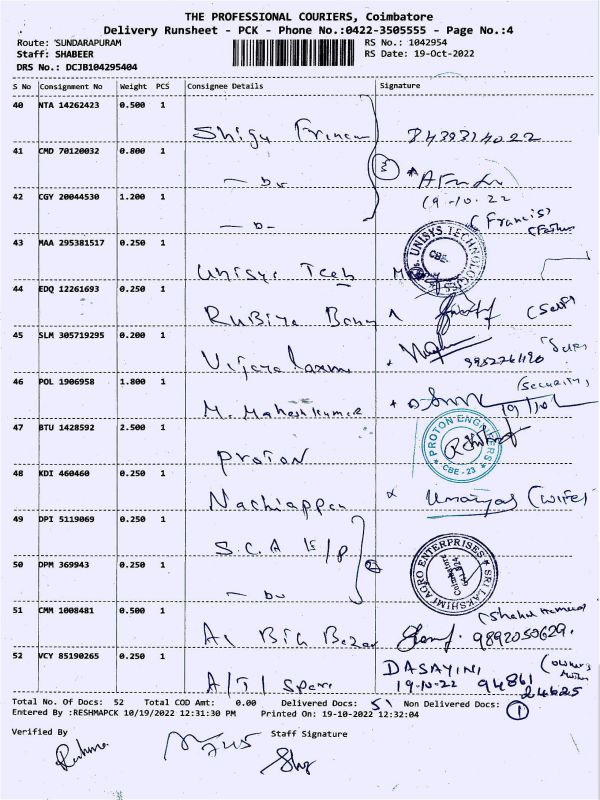 THE PROFESSIONAL COURIERS, Coimbatore
Delivery Runsheet - PCK - Phone No.:0422-3505555 - Page No.:4
Route: 'SUNDARAPURAM
RS No.: 1042954
Staff: SHABEER
RS Date: 19-Oct-2022
DRS No.: DCJB104295404
S No Consignment No Weight PCS Consignee Details Signature
40 NTA 14262423 0.500 1
Shigu Francis 8438314022
41 CMD 70120032 0.800 1
- do - 3
19-10-22
42 CGY 20044530 1.200 1
(Francis)
- D - (Father
43 MAA 295381517 0.250 1
UNISYS TECHNOLOGIES
CBE
Unisys Tech
44 EDQ 12261693 0.250 1
Rubiya Banu (Self)
45 SLM 305719295 0.200 1
Vijayalaxmi
46 POL 1906958 1.800 1
(Security)
M. Maheshkumar 19/10/
47 BTU 1428592 2.500 1
PROTON ENGINEERS
CBE-23
Proton
48 KDI 460460 0.250 1
Nachiappan (Wife)
49 DPI 5119069 0.250 1
S.C.A
50 DPM 369943 0.250 1
SRI LAKSHMI AGRO ENTERPRISES
Coimbatore
641 024
- do
51 CMM 1008481 0.500 1
Al Big Bazar 9892050629.
52 VCY 85190265 0.250 1
DASAYINI (owner's
A/T1 Spare 19-10-22 94861
24625
Total No. Of Docs: 52 Total COD Amt: 0.00 Delivered Docs: 51 Non Delivered Docs: 1
Entered By :RESHMAPCK 10/19/2022 12:31:30 PM Printed On: 19-10-2022 12:32:04
Verified By Staff Signature
Reshma